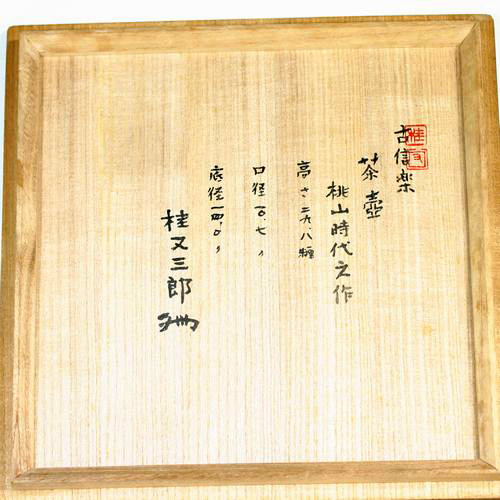 古信楽
茶壺
桃山時代之作
高さ二九.八糎
口径一〇.七〃
底径一四.〇〃
桂又三郎